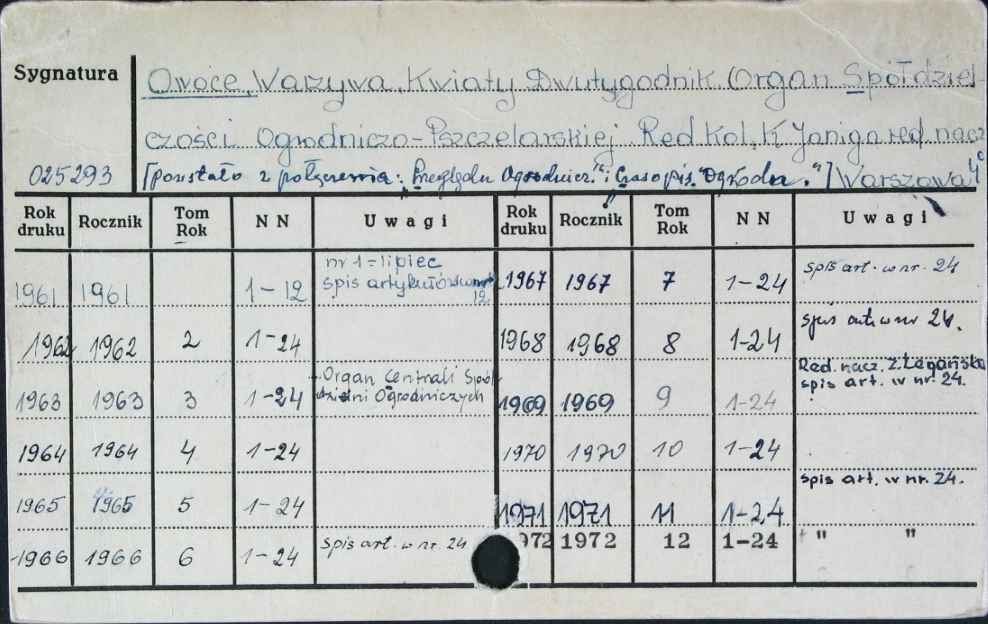 Sygnatura
Owoce, Warzywa, Kwiaty Dwutygodnik (Organ Spółdziel-
czości Ogrodniczo-Pszczelarskiej. Red Kol. K Janiga red. nacz
025293 [powstało z połączenia: "Przeglądu Ogrodnicz." i "Czasopis. Ogrodn."] Warszawa 4°
Rok druku Rocznik Tom Rok N N Uwagi Rok druku Rocznik Tom Rok N N Uwagi
1961 1961 1-12 nr 1 = lipiec spis artykułów w nr 12 1967 1967 7 1-24 spis art. w nr. 24
1962 1962 2 1-24 1968 1968 8 1-24 spis art. w nr 24.
1963 1963 3 1-24 Organ Centrali Spół-dzielni Ogrodniczych 1969 1969 9 1-24 Red. nacz. Z. Łegańska spis art. w nr. 24.
1964 1964 4 1-24 1970 1970 10 1-24
1965 1965 5 1-24 1971 1971 11 1-24 spis art. w nr. 24.
1966 1966 6 1-24 spis art. w nr. 24 1972 1972 12 1-24 " "